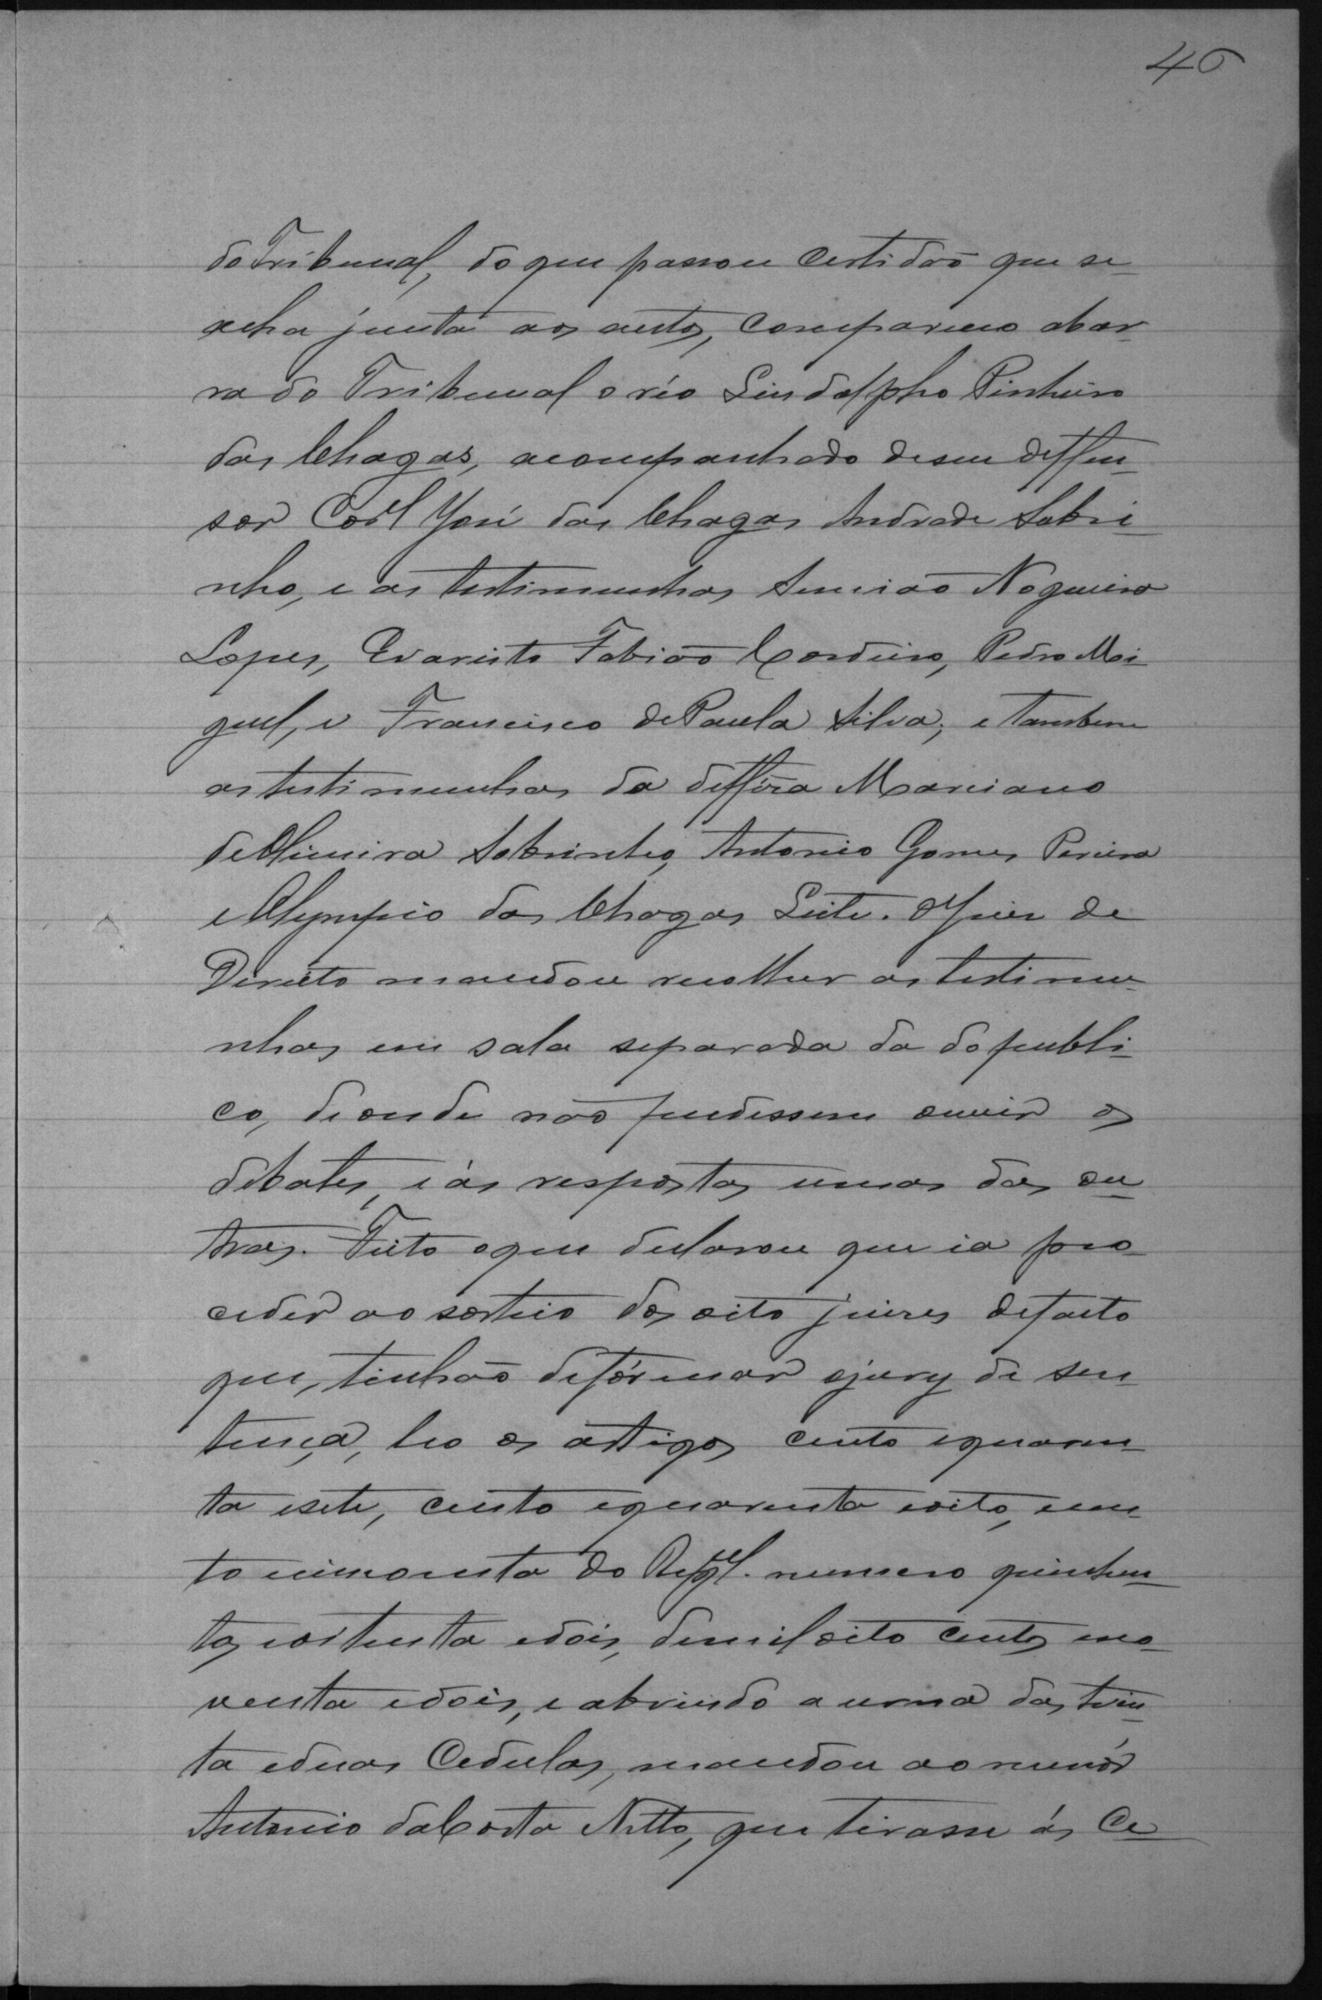 46
do Tribunal, do que passou certidão que se
acha junta aos autos, compareceo abar-
ra do Tribunal o réo Lindolpho Pinheiro
das Chagas, acompanhado de seu deffen-
sor Cel José das Chagas Andrade Sobri-
nho, e as testimunhas Simião Nogueira
Lopes, Evaristo Fabião Cordeiro, Pedro Mi-
guel, e Francisco de Paula Silva; e tambem
as testimunhas da deffêsa Marciano
de Oliveira Sobrinho, Antonio Gomes Pereira
e Olympio das Chagas Leite. O Juiz de
Direito mandou recolher as testimu-
nhas em sala separada da do publi-
co, de onde não pudessem ouvir os
debates, e ás respostas umas das ou-
tras. Feito o que declarou que ia pro-
ceder ao sorteio dos oito juizes de facto
que, tinhão de fórmar o jury de sen-
tença, leo os artigos cento e quaren-
ta e sete, cento e quarenta e oito, cen-
to e cincoenta do Regl. numero quinhen-
tos e oitenta e dois, de mil oito centos e no-
venta e dois, e abrindo a urna das trin-
ta e duas Cedulas, mandou ao menór
Antonio da Costa Netto, que tirasse ás Ce